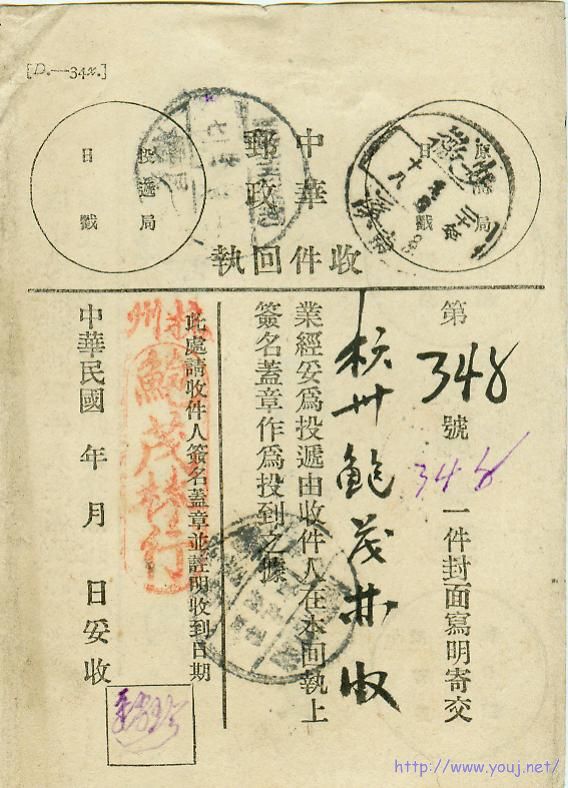 [D.—34x.]
中華
郵政
收件回執
原寄局
日戳
投遞局
日戳
第348號
348
一件封面寫明寄交
杭州鮑茂林收
業經妥爲投遞由收件人在本回執上
簽名蓋章作爲投到之據
此處請收件人簽名蓋章並註明收到日期
杭州
鮑茂林行
中華民國 年 月 日妥收
http://www.youj.net/